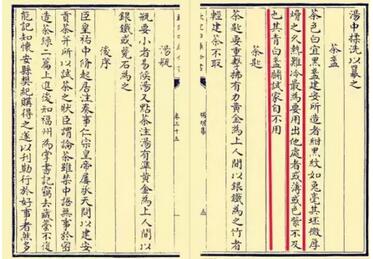 湯中揉洗以羃之
茶盞
茶色白宜黑盞建安所造者紺黑紋如兔毫其坯微厚
熁之久熱難冷最為要用出他處者或薄或色紫不及
也其青白盞鬭試家自不用
茶匙
茶匙要重擊拂有力黃金為上人間以銀鐵為之竹者
輕建茶不取
卷三十五
湯瓶
瓶要小者易候湯又點茶注湯有準黃金為上人間以
銀鐵或甆石為之
後序
臣皇祐中脩起居注奏事仁宗皇帝屢承天問以建安
貢茶并所以試茶之狀臣謂論茶雖禁中語無事於密
造茶錄二篇上進後知福州為掌書記竊去藏藁不復
能記知懷安縣樊紀購得之遂以刊勒行於好事者然多